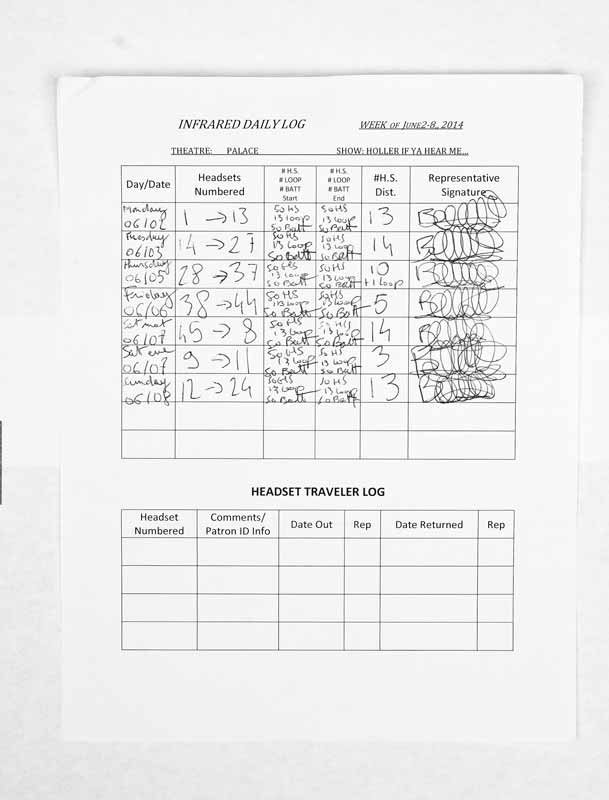 INFRARED DAILY LOG WEEK OF JUNE2-8, 2014
THEATRE: PALACE SHOW: HOLLER IF YA HEAR ME...
Day/Date Headsets Numbered # H.S. # LOOP # BATT Start # H.S. # LOOP # BATT End #H.S. Dist. Representative Signature
Monday 06/02 1 → 13 50 HS 13 loop 50 Batt 50 HS 13 loop 50 Batt 13
Tuesday 06/03 14 → 27 50 HS 13 loop 50 Batt 50 HS 13 loop 50 Batt 14
Thursday 06/05 28 → 37 50 HS 13 loop 50 Batt 50 HS 13 loop 50 Batt 10 +1 loop
Friday 06/06 38 → 44 50 HS 13 loop 50 Batt 50 HS 13 loop 50 Batt 5
Sat mat 06/07 45 → 8 50 HS 13 loop 50 Batt 50 HS 13 loop 50 Batt 14
Sat eve 06/07 9 → 11 50 HS 13 loop 50 Batt 50 HS 13 loop 50 Batt 3
Sunday 06/08 12 → 24 50 HS 13 loop 50 Batt 50 HS 13 loop 50 Batt 13
HEADSET TRAVELER LOG
Headset Numbered Comments/ Patron ID Info Date Out Rep Date Returned Rep